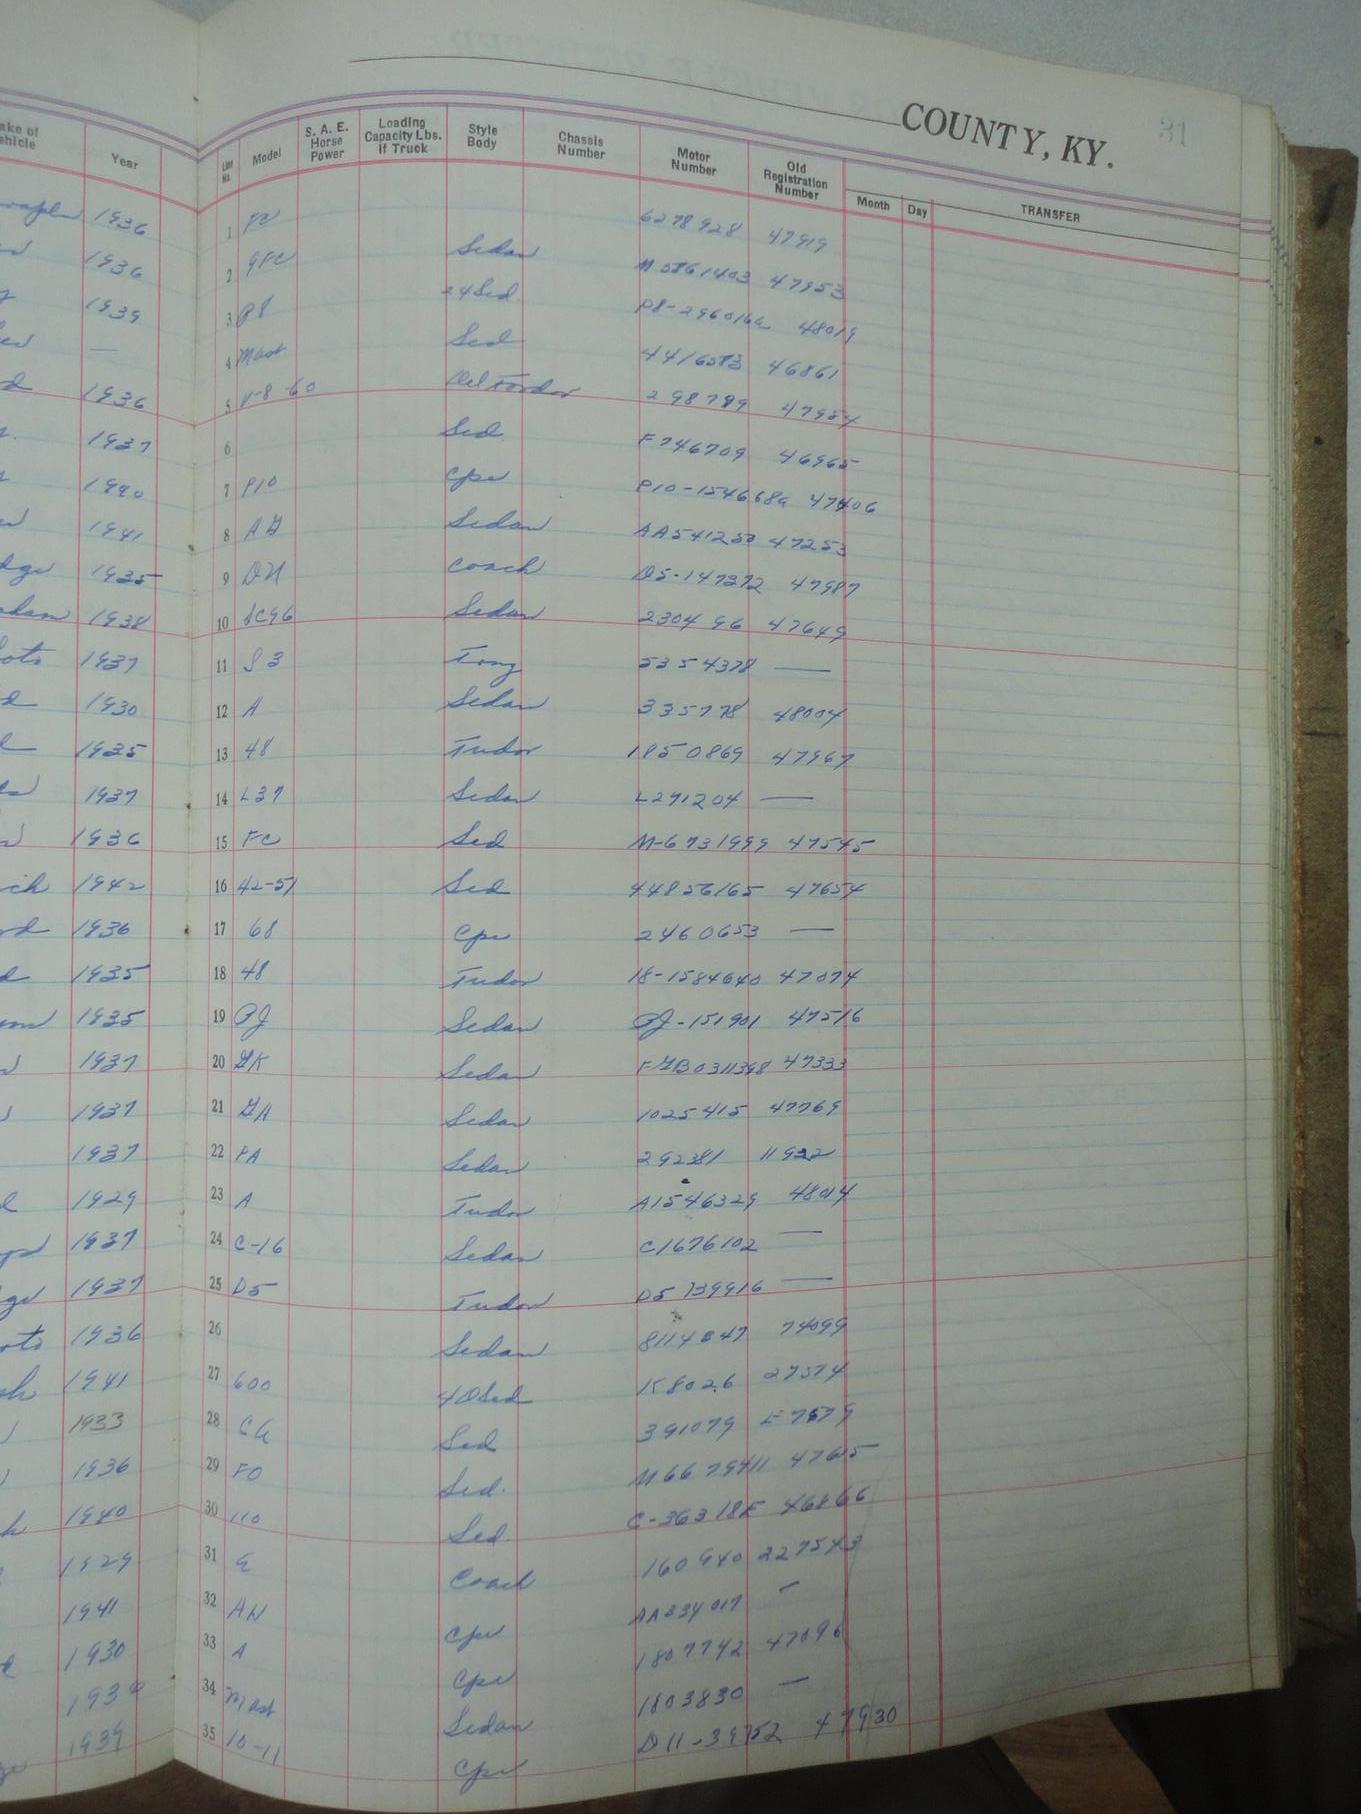 COUNTY, KY. 31
Year Line No. Model S. A. E. Horse Power Loading Capacity Lbs. if Truck Style Body Chassis Number Motor Number Old Registration Number Month Day TRANSFER
1936 1 6278928 47919
1936 2 Sedan 47953
1939 3 P8 48019
— 4 Mast Sed 46861
1936 5 V-8 60 Del Fordor 298799 47954
1937 6 Sed. F746709 46965
1940 7 P10 Cpe P10-154668a 47406
1941 8 AG Sedan AA541250 47253
1935 9 DU Coach D5-147372 47987
1938 10 Sedan 230496 47649
1937 11 5354378 —
1930 12 A Sedan 335778 48004
1935 13 48 Tudor 1850869 47967
1937 14 L37 Sedan L291204 —
1936 15 FC Sed M-6731999 47545
1942 16 42-51 Sed 44856165 47654
1936 17 68 Cpe 2460653 —
1935 18 48 Tudor 18-1584640 47074
1935 19 PJ Sedan PJ-151901 47516
1937 20 GK Sedan 47333
1937 21 GA Sedan 1025415 47769
1937 22 PA Sedan 292381 11922
1929 23 A Tudor A1546329 48014
1937 24 C-16 Sedan C1676102 —
1937 25 D5 Tudor D5 139916 —
1936 26 Sedan 74099
1941 27 600 4DSed K8026 27574
1933 28 Sed 391079
1936 29 Sed. 47615
1940 30 110 Sed. 46866
1929 31 Coach 160940 227543
1941 32 Cpe AA334017 —
1930 33 A Cpe 1807742 47096
34 Mast Sedan 1803830 —
1939 35 10-11 Cpe D11-39752 47930